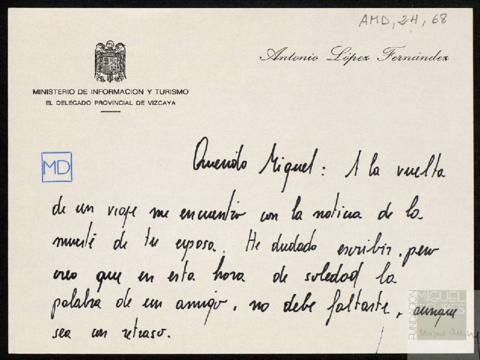 AMD, 24, 68
Antonio López Fernández
MINISTERIO DE INFORMACION Y TURISMO
EL DELEGADO PROVINCIAL DE VIZCAYA
MD
Querido Miguel: A la vuelta
de un viaje me encuentro con la noticia de la
muerte de tu esposa. He dudado escribir, pero
creo que en esta hora de soledad la
palabra de un amigo, no debe faltarte, aunque
sea con retraso.
FUNDACIÓN
MIGUEL